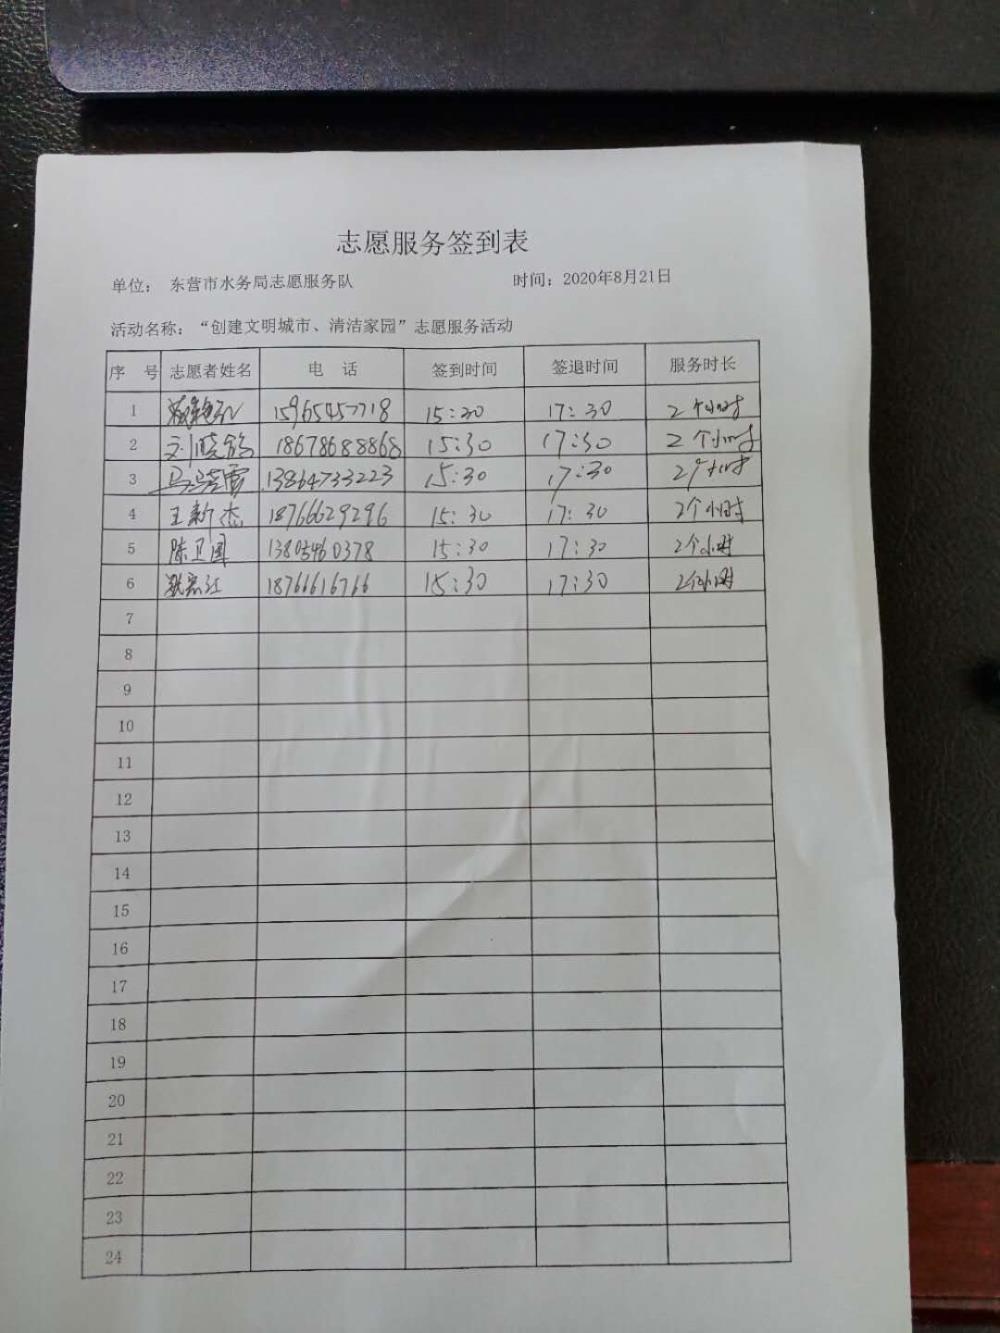 志愿服务签到表
单位： 东营市水务局志愿服务队 时间：2020年8月21日
活动名称：“创建文明城市、清洁家园”志愿服务活动
序 号 志愿者姓名 电 话 签到时间 签退时间 服务时长
1 15965457718 15:30 17:30 2个小时
2 刘晓鹤 18678688868 15:30 17:30 2个小时
3 13864733223 15:30 17:30 2个小时
4 王新杰 18766629296 15:30 17:30 2个小时
5 陈卫国 13805460378 15:30 17:30 2个小时
6 18766616766 15:30 17:30 2个小时
7
8
9
10
11
12
13
14
15
16
17
18
19
20
21
22
23
24